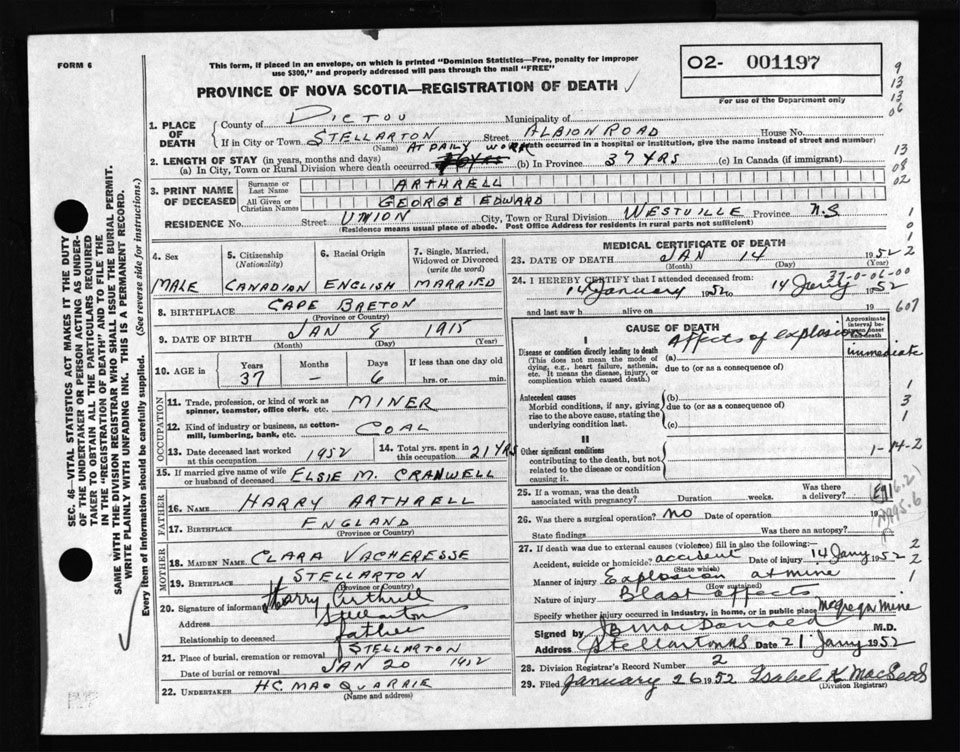 FORM 6
This form, if placed in an envelope, on which is printed "Dominion Statistics—Free, penalty for improper
use $300," and properly addressed will pass through the mail "FREE"
PROVINCE OF NOVA SCOTIA—REGISTRATION OF DEATH
02- 001197
For use of the Department only
1. PLACE OF DEATH County of PICTOU Municipality of
If in City or Town STELLARTON Street ALBION ROAD House No.
(Name) (If death occurred in a hospital or institution, give the name instead of street and number)
AT DAILY WORK
2. LENGTH OF STAY (in years, months and days)
(a) In City, Town or Rural Division where death occurred (b) In Province 37 YRS (c) In Canada (if immigrant)
3. PRINT NAME OF DECEASED Surname or Last Name ARTHRELL
All Given or Christian Names GEORGE EDWARD
RESIDENCE No. Street UNION City, Town or Rural Division WESTVILLE Province N.S
(Residence means usual place of abode. Post Office Address for residents in rural parts not sufficient)
4. Sex 5. Citizenship (Nationality) 6. Racial Origin 7. Single, Married, Widowed or Divorced (write the word)
MALE CANADIAN ENGLISH MARRIED
8. BIRTHPLACE CAPE BRETON
(Province or Country)
9. DATE OF BIRTH JAN 8 1915
(Month) (Day) (Year)
10. AGE in Years Months Days If less than one day old
37 — 6 hrs. or min.
OCCUPATION
11. Trade, profession, or kind of work as spinner, teamster, office clerk, etc. MINER
12. Kind of industry or business, as cotton-mill, lumbering, bank, etc. COAL
13. Date deceased last worked at this occupation 1952 14. Total yrs. spent in this occupation 21 YRS
15. If married give name of wife or husband of deceased ELSIE M. CRANWELL
FATHER
16. NAME HARRY ARTHRELL
17. BIRTHPLACE ENGLAND
(Province or Country)
MOTHER
18. MAIDEN NAME CLARA VACHERESSE
19. BIRTHPLACE STELLARTON
(Province or Country)
20. Signature of informant Harry Arthrell
Address Stellarton
Relationship to deceased father
21. Place of burial, cremation or removal STELLARTON
Date of burial or removal JAN 20 1952
22. UNDERTAKER H C MACQUARRIE
(Name and address)
MEDICAL CERTIFICATE OF DEATH
23. DATE OF DEATH JAN 14 1952
(Month) (Day) (Year)
37-0-06-00
24. I HEREBY CERTIFY that I attended deceased from:
14 January 1952 to 14 Janry 1952
and last saw h alive on 19
607
CAUSE OF DEATH Approximate interval between onset and death
I
Disease or condition directly leading to death (a) Affects of explosion immediate
(This does not mean the mode of dying, e.g., heart failure, asthenia, etc. It means the disease, injury, or complication which caused death.)
due to (or as a consequence of)
Antecedent causes (b)
Morbid conditions, if any, giving rise to the above cause, stating the underlying condition last.
due to (or as a consequence of)
(c)
II
Other significant conditions
contributing to the death, but not related to the disease or condition causing it.
1-14-2
25. If a woman, was the death associated with pregnancy? Duration weeks. Was there a delivery?
26. Was there a surgical operation? no Date of operation 19
State findings Was there an autopsy?
27. If death was due to external causes (violence) fill in also the following:—
Accident, suicide or homicide? accident Date of injury 14 Janry 1952
(State which)
Manner of injury Explosion at mine
(How sustained)
Nature of injury Blast effects
Specify whether injury occurred in industry, in home, or in public place McGregor mine
Signed by MacDonald M.D.
Address Stellarton NS Date 21 Janry 1952
28. Division Registrar's Record Number 2
29. Filed January 26 1952 Isabel K. MacLeod
(Division Registrar)
SEC. 46—VITAL STATISTICS ACT MAKES IT THE DUTY
OF THE UNDERTAKER OR PERSON ACTING AS UNDER-
TAKER TO OBTAIN ALL THE PARTICULARS REQUIRED
IN THE "REGISTRATION OF DEATH" AND TO FILE THE
SAME WITH THE DIVISION REGISTRAR WHO SHALL ISSUE THE BURIAL PERMIT.
WRITE PLAINLY WITH UNFADING INK. THIS IS A PERMANENT RECORD.
Every item of information should be carefully supplied. (See reverse side for instructions.)
9
13
13
06
13
08
02
1
0
1
2
1
3
1
2
2
1